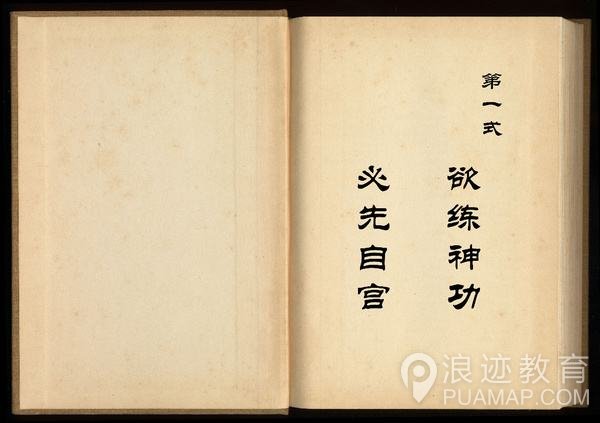 第一式
欲练神功
必先自宫
浪迹教育
PUAMAP.COM